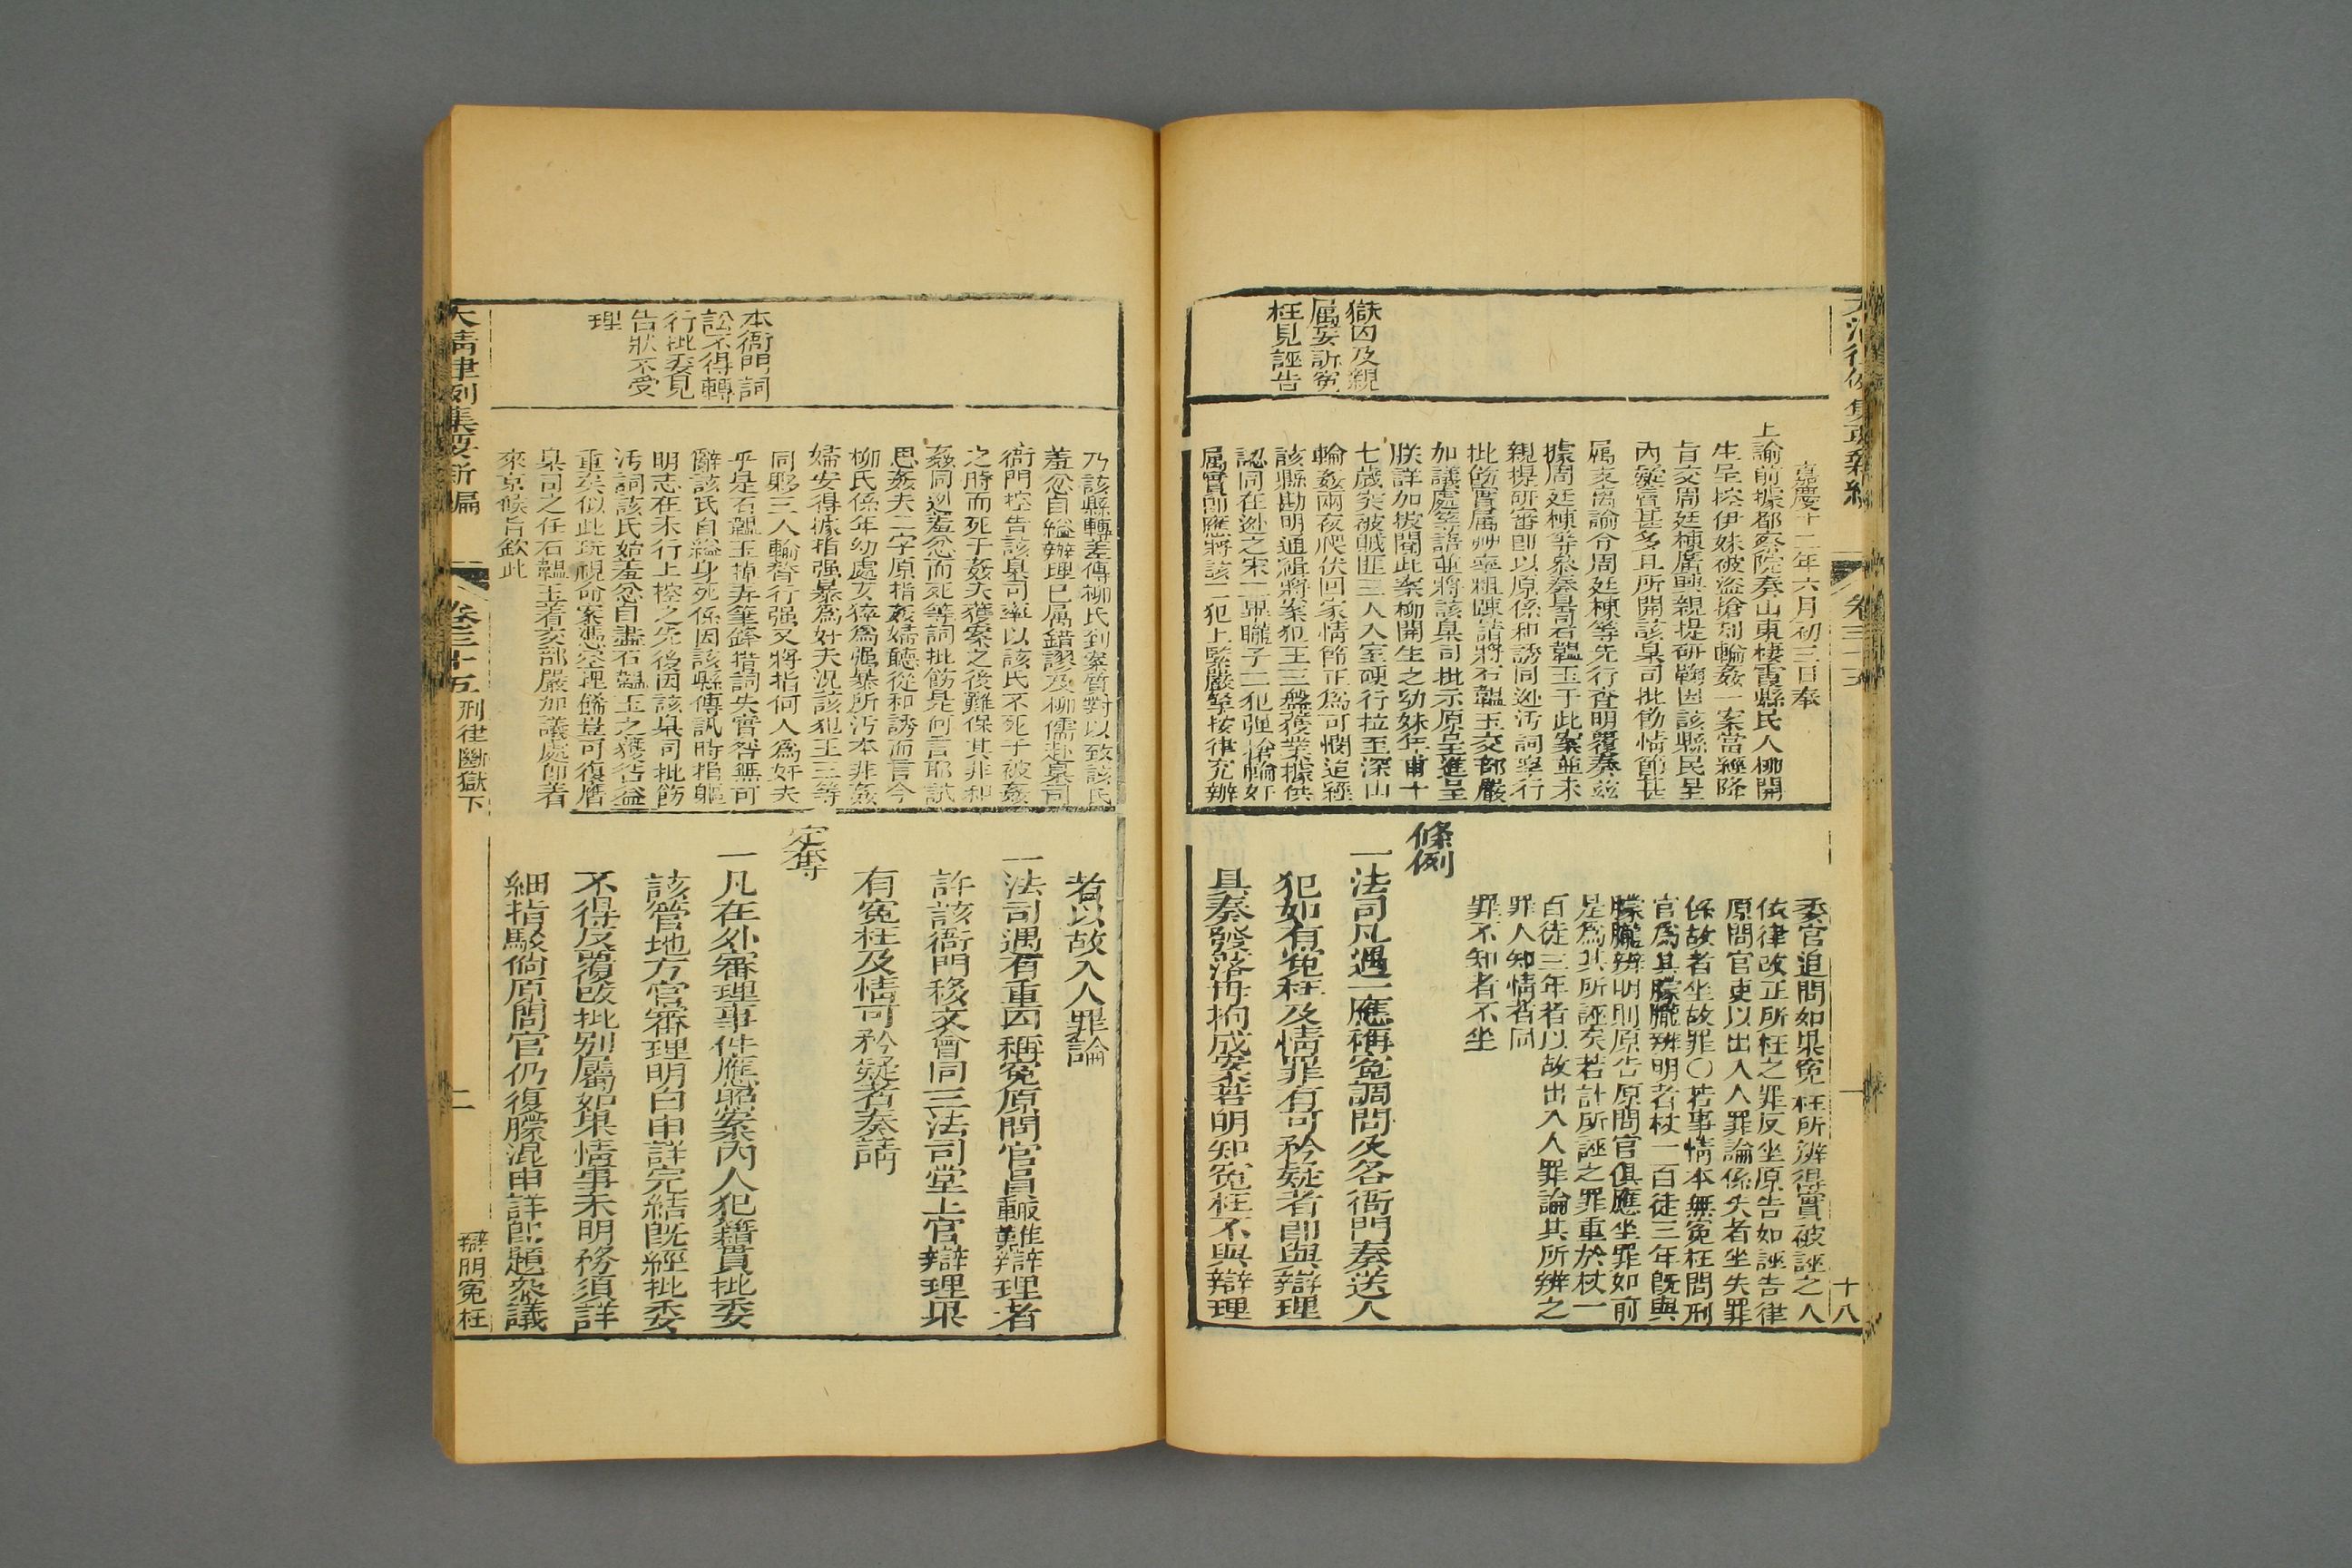 大清律例集要新編 卷三十五 十八
獄囚及親
屬妄訴冤
枉見誣告
嘉慶十二年六月初三日奉
上諭前據都察院奏山東棲霞縣民人柳開
生呈控伊妹被盜搶刼輪姦一案當經降
旨交周廷棟廣興親提研鞫因該縣民呈
內甚多且所開該臬司批飭情節甚
屬支離諭令周廷棟等先行查明覆奏茲
據周廷棟等叅奏臬司石韞玉于此案並未
親提研審即以原係和誘同逃汚詞率行
批飭實屬艸率粗踈請將石韞玉交部嚴
加議處等語並將該臬司批示原呈進呈
朕詳加披閱此案柳開生之幼妹年甫十
七歲突被賊匪三人入室硬行拉至深山
輪姦兩夜爬伏回家情節正爲可憫迨經
該縣勘明通緝將案犯王三盤獲業據供
認同在逃之宋二朧子二犯强搶輪奸
屬實即應將該二犯上緊嚴拏按律充辦
委官追問如果冤枉所辨得實被誣之人
依律改正所枉之罪反坐原告如誣告律
原問官吏以出入人罪論係失者坐失罪
係故者坐故罪○若事情本無冤枉問刑
官爲其朦朧辨明者杖一百徒三年旣與
朦朧辨明則原告原問官俱應坐罪如前
是爲其所誣矣若計所誣之罪重於杖一
百徒三年者以故出入人罪論其所辨之
罪人知情者同
罪不知者不坐
條例
一法司凡遇一應稱寃調問及各衙門奏送人
犯如有寃枉及情罪有可矜疑者即與辯理
具奏發落毋拘成案若明知寃枉不與辯理
本衙門詞
訟不得轉
行批委見
告狀不受
理
乃該縣轉差傳柳氏到案質對以致該氏
羞忿自縊辦理已屬錯謬及柳儒赴臬司
衙門控告該臬司率以該氏不死于被姦
之時而死于姦夫獲案之後難保其非和
姦同逃羞忿而死等詞批飭是何言耶試
思姦夫二字原指姦婦聽從和誘而言今
柳氏係年幼處女猝爲强暴所汚本非姦
婦安得據指强暴爲奸夫況該犯王三等
同夥三人輪替行强又將指何人爲奸夫
乎是石韞玉掉弄筆鋒措詞失當咎無可
辭該氏自縊身死係因該縣傳訊時捐軀
明志在未行上控之先後因該臬司批飭
汚詞該氏始羞忿自盡石韞玉之獲咎益
重矣似此玩視命案憑空理豈可復膺
臬司之任石韞玉着交部嚴加議處即着
來京候旨欽此
者以故入人罪論
一法司遇有重囚稱冤原問官員輙難辯理者
許該衙門移文會同三法司堂上官辯理果
有寃枉及情可矜疑者奏請
定奪
一凡在外審理事件應照案內人犯籍貫批委
該管地方官審理明白申詳完結旣經批委
不得反覆改批別屬如果情事未明務須詳
細指駁倘原問官仍復朦混申詳卽題叅議
大清律例集要新編 卷三十五 刑律斷獄下 二 辯明冤枉